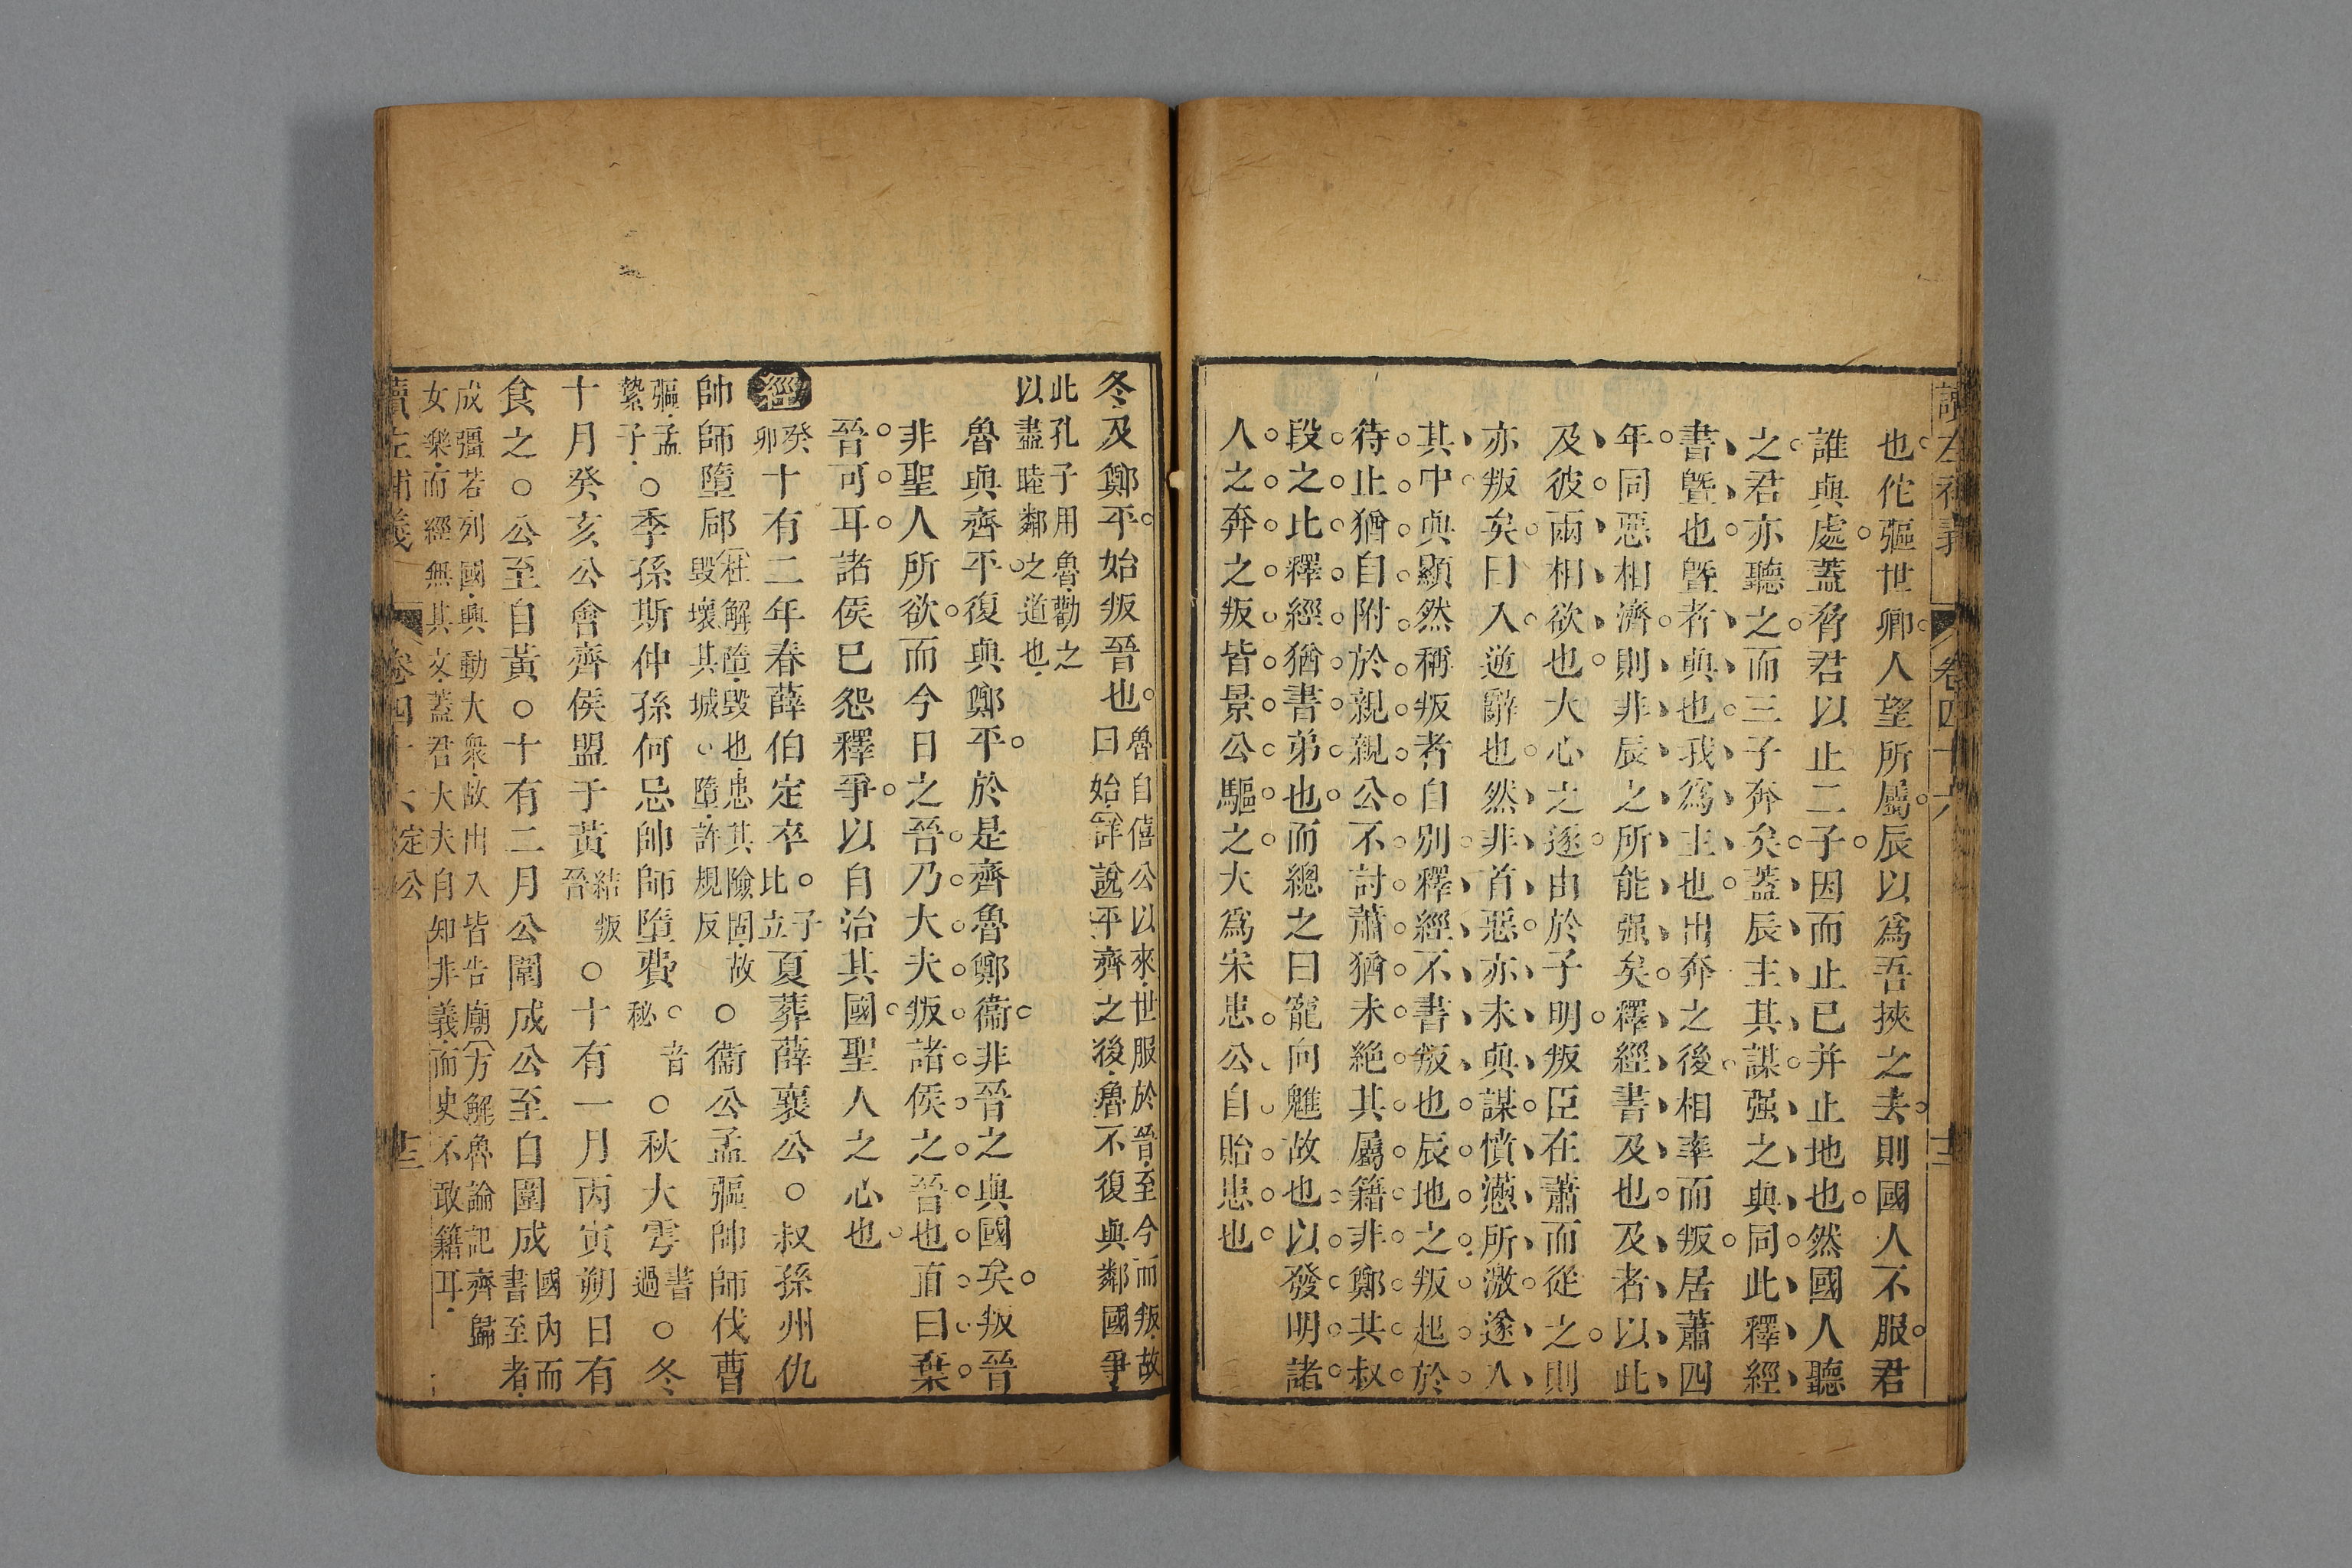 讀左補義 卷四十六 十二
也佗彄世卿人望所屬辰以爲吾挾之去則國人不服君
誰與處蓋脅君以止二子因而止已并止地也然國人聽
之君亦聽之而三子奔矣蓋辰主其謀强之與同此釋經
書曁也曁者與也我爲主也出奔之後相率而叛居蕭四
年同惡相濟則非辰之所能强矣釋經書及也及者以此
及彼兩相欲也大心之逐由於子明叛臣在蕭而從之則
亦叛矣曰入逆辭也然非首惡亦未與謀憤懣所激遂入
其中與顯然稱叛者自別釋經不書叛也辰地之叛起於
待止猶自附於親親公不討蕭猶未絶其屬籍非鄭共叔
段之比釋經猶書弟也而總之曰寵向魋故也以發明諸
人之奔之叛皆景公驅之大爲宋患公自貽患也
冬及鄭平始叛晉也
魯自僖公以來世服於晉至今而叛故
曰始詳說平齊之後魯不復與鄰國爭
此孔子用魯勸之
以盡睦鄰之道也
魯與齊平復與鄭平於是齊魯鄭衞非晉之與國矣叛晉
非聖人所欲而今日之晉乃大夫叛諸侯之晉也直曰棄
晉可耳諸侯已怨釋爭以自治其國聖人之心也
經 癸卯 十有二年春薛伯定卒 子比立 夏葬薛襄公○叔孫州仇
帥師墮郈 杜解墮毀也患其險固故毀壞其城墮許規反 ○衞公孟彄帥師伐曹
彄孟縶子 ○季孫斯仲孫何忌帥師墮費 音秘 ○秋大雩 書過 ○冬
十月癸亥公會齊侯盟于黃 結叛晉 ○十有一月丙寅朔日有
食之○公至自黃○十有二月公圍成公至自圍成 國內而書至者
成彊若列國興動大衆故出入皆告廟方解魯論記齊歸
女樂而經無其文蓋君大夫自知非義而史不敢籍耳
讀左補義 卷四十六 定公 十三